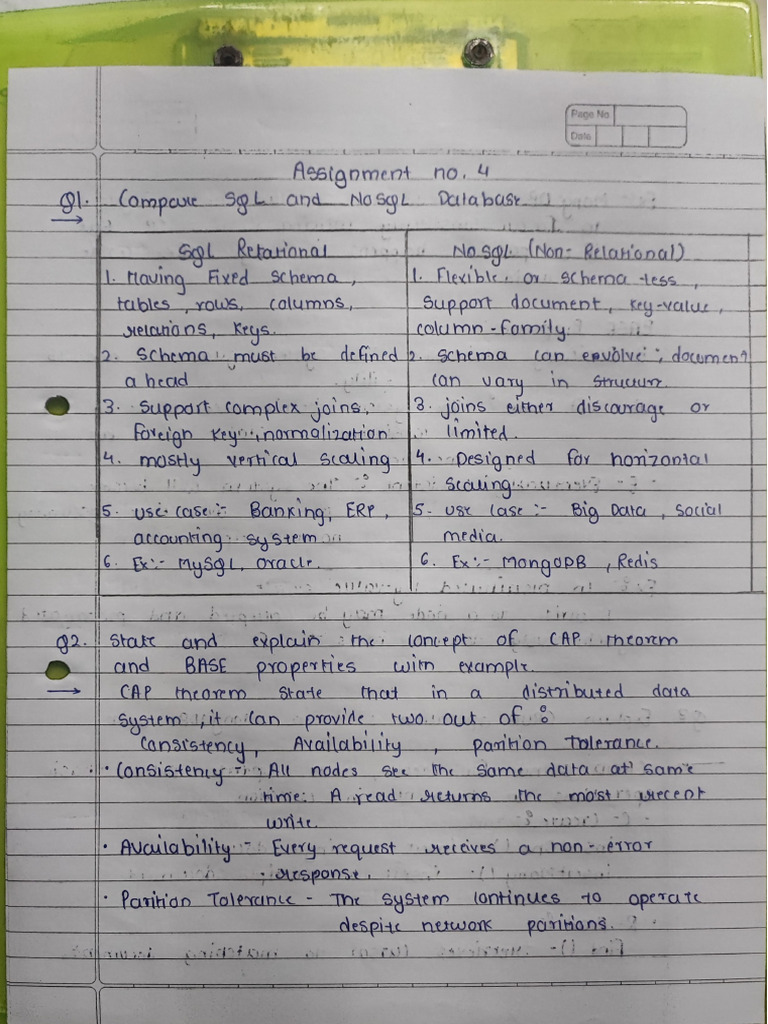 Page No
Date
Assignment no. 4
Q1. Compare SQL and NoSQL Database.
SQL Relational
1. Having Fixed Schema,
tables, rows, columns,
relations, Keys.
2. Schema must be defined
ahead
3. Support complex joins,
Foreign key, normalization
4. mostly vertical scaling
5. use case :- Banking, ERP,
accounting system
6. Ex:- MySQL, Oracle.
NOSQL (Non-Relational)
1. Flexible or schema-less,
Support document, key-value,
column-family.
2. schema can envolve, document
can vary in structure.
3. joins either discourage or
limited.
4. Designed for horizontal
scaling
5. use case :- Big Data, Social
media.
6. Ex:- MongoDB, Redis
Q2. State and explain the concept of CAP theorem
and BASE properties with example.
→ CAP theorem state that in a distributed data
system, it can provide two out of :
Consistency, Availability, Parition Tolerance.
• Consistency - All nodes see the same data at same
time. A read returns the most recent
write.
• Availability - Every request receives a non-error
response.
• Parition Tolerance - The system continues to operate
despite network paritions.